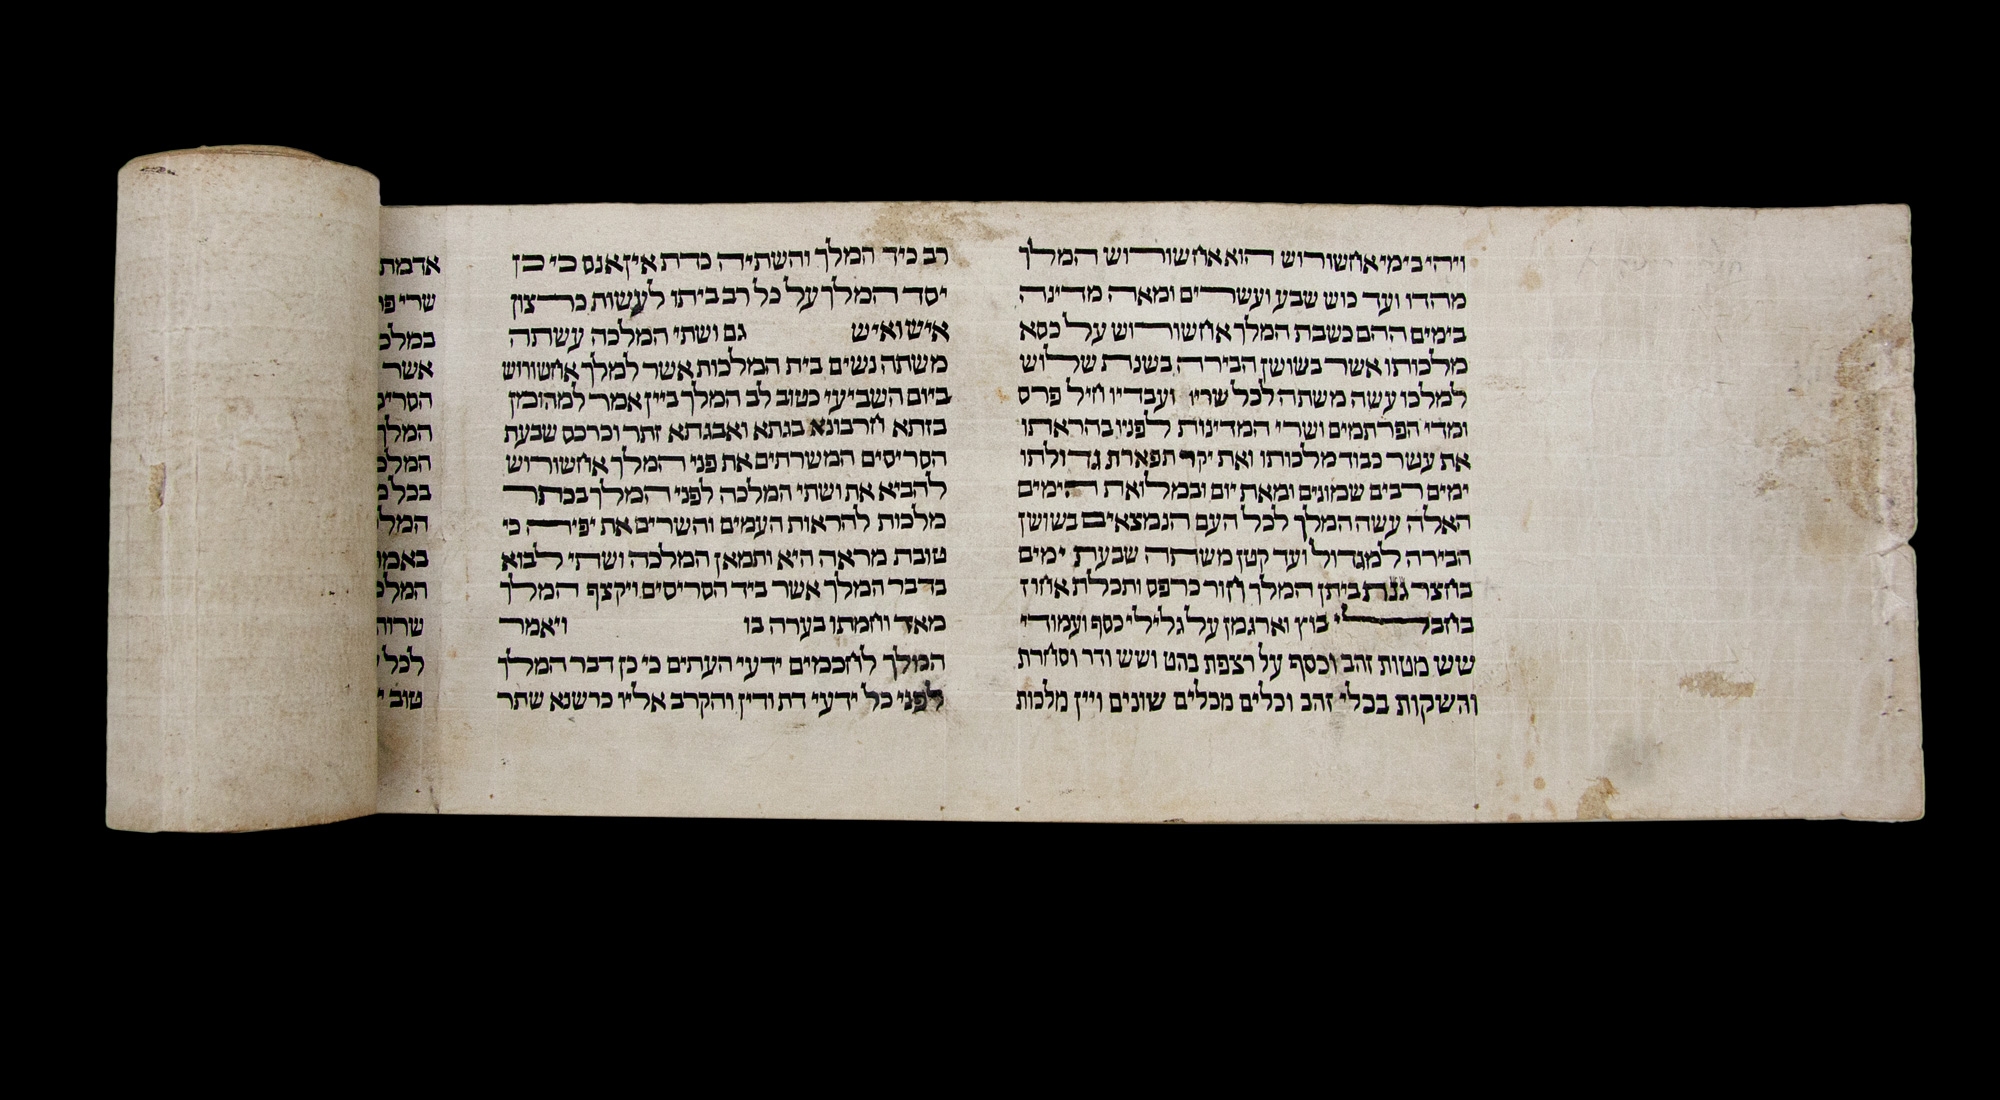 ויהי בימי אחשורוש הוא אחשורוש המלך
מהדו ועד כוש שבע ועשרים ומאה מדינה
בימים ההם כשבת המלך אחשורוש על כסא
מלכותו אשר בשושן הבירה בשנת שלוש
למלכו עשה משתה לכל שריו ועבדיו חיל פרס
ומדי הפרתמים ושרי המדינות לפניו בהראתו
את עשר כבוד מלכותו ואת יקר תפארת גדולתו
ימים רבים שמונים ומאת יום ובמלואת הימים
האלה עשה המלך לכל העם הנמצאים בשושן
הבירה למגדול ועד קטן משתה שבעת ימים
בחצר גנת ביתן המלך חור כרפס ותכלת אחוז
בחבלי בוץ וארגמן על גלילי כסף ועמודי
שש מטות זהב וכסף על רצפת בהט ושש ודר וסחרת
והשקות בכלי זהב וכלים מכלים שונים ויין מלכות
רב כיד המלך והשתיה כדת אין אנס כי כן
יסד המלך על כל רב ביתו לעשות כרצון
איש ואיש גם ושתי המלכה עשתה
משתה נשים בית המלכות אשר למלך אחשורוש
ביום השביעי כטוב לב המלך ביין אמר למהומן
בזתא חרבונא בגתא ואבגתא זתר וכרכס שבעת
הסריסים המשרתים את פני המלך אחשורוש
להביא את ושתי המלכה לפני המלך בכתר
מלכות להראות העמים והשרים את יפיה כי
טובת מראה היא ותמאן המלכה ושתי לבוא
בדבר המלך אשר ביד הסריסים ויקצף המלך
מאד וחמתו בערה בו ויאמר
המלך לחכמים ידעי העתים כי כן דבר המלך
לפני כל ידעי דת ודין והקרב אליו כרשנא שתר
אדמת
שרי פר
במלכ
אשר
הסריס
המלך
המלכ
בכל מ
המלכ
באמר
המלכ
שרות
לכל
טוב י